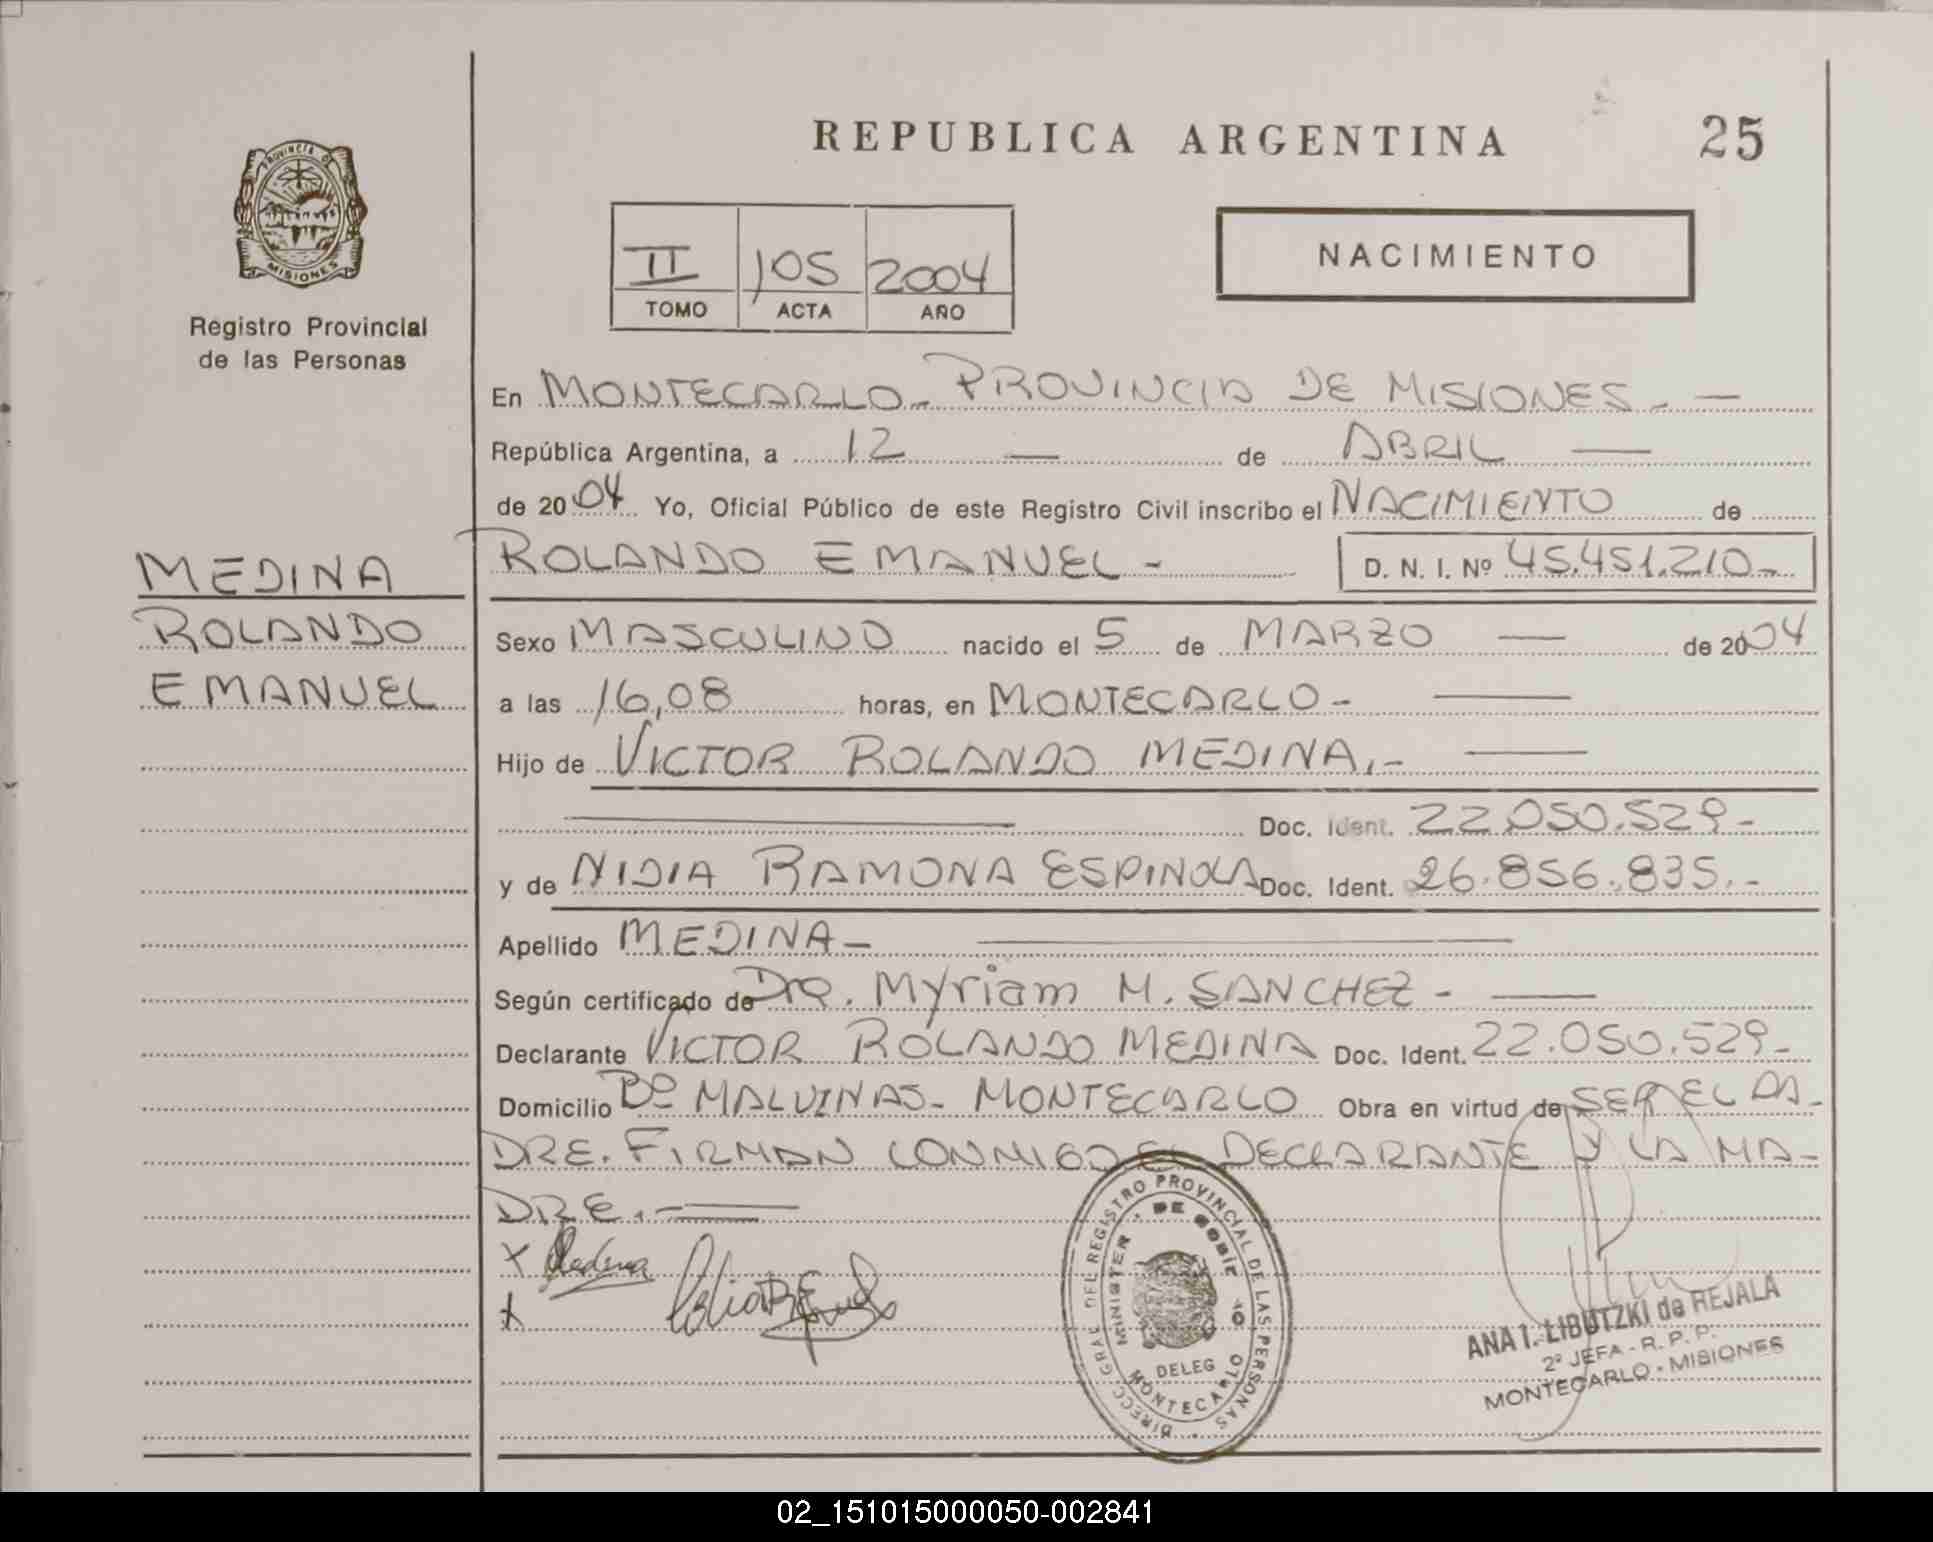 REPUBLICA ARGENTINA 25
PROVINCIA DE
MISIONES
Registro Provincial
de las Personas
II 105 2004
TOMO ACTA AÑO
NACIMIENTO
En MONTECARLO- PROVINCIA DE MISIONES. —
República Argentina, a 12 — de ABRIL —
de 2004 Yo, Oficial Público de este Registro Civil inscribo el NACIMIENTO de
ROLANDO EMANUEL - D. N. I. Nº 45.451.210-
MEDINA
ROLANDO
EMANUEL
Sexo MASCULINO nacido el 5 de MARZO — de 2004
a las 16,08 horas, en MONTECARLO - —
Hijo de VICTOR ROLANDO MEDINA.- —
— Doc. Ident. 22.050.529-
y de NIDIA RAMONA ESPINOLA Doc. Ident. 26.856.835.-
Apellido MEDINA- —
Según certificado de Dra. Myriam M. SANCHEZ - —
Declarante VICTOR ROLANDO MEDINA Doc. Ident. 22.050.529-
Domicilio Bº MALVINAS- MONTECARLO Obra en virtud de SER EL PA-
DRE. FIRMAN CONMIGO EL DECLARANTE Y LA MA-
DRE.- —
x Medina
x
DIRECC GRAL DEL REGISTRO PROVINCIAL DE LAS PERSONAS
MINISTER. DE GOBIE
DELEG
MONTECARLO
ANA I. LIBUTZKI de REJALA
2º JEFA - R. P. P.
MONTECARLO - MISIONES
02_151015000050-002841